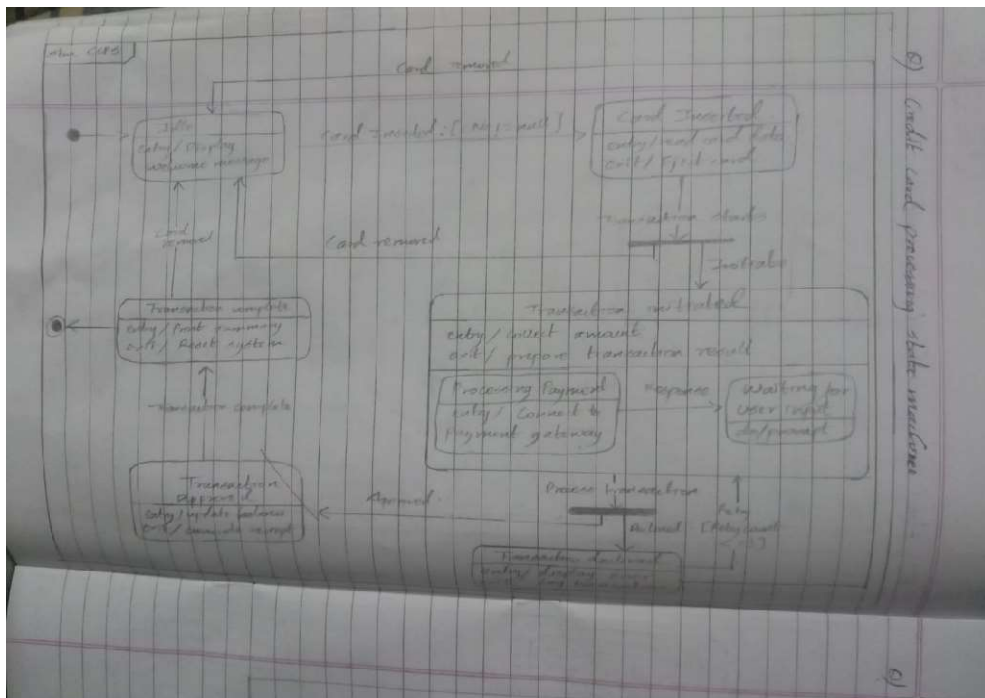 Q) Credit card processing state machines
Card removed
Idle
entry/Display
welcome message
Card Inserted:[ No!=null]
Card Inserted
entry/read card data
exit/Eject card
Transaction starts
Card removed
Card
removed
Initiate
Transaction complete
entry/Print summary
exit/Reset system
Transaction initiated
entry/collect amount
exit/prepare transaction result
Processing Payment
entry/Connect to
payment gateway
Response
Waiting for
user input
do/prompt
Transaction complete
Transaction
Approved
entry/update balance
exit/generate receipt
Approved
Process transaction
Retry
[Retry count
Transaction declined
entry/display
Q)